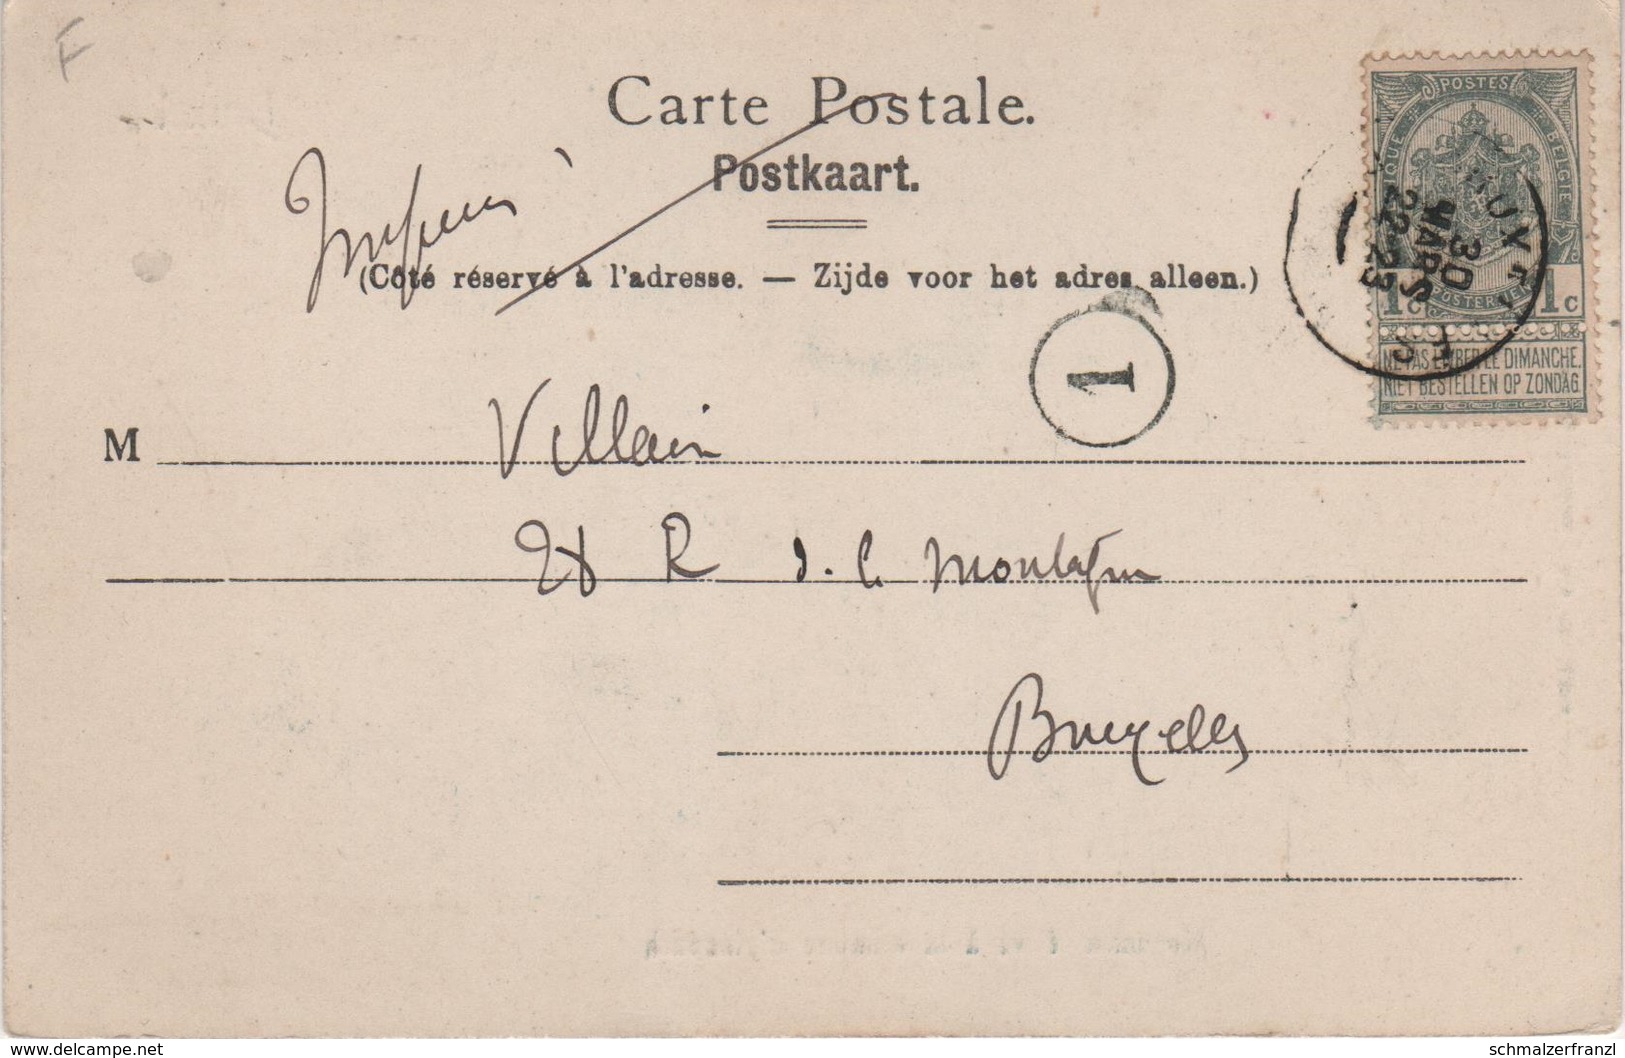 F
Carte Postale.
Postkaart.
Imprimé
(Côté réservé à l'adresse. — Zijde voor het adres alleen.)
POSTES
BELGIE
1c 1c
NE PAS LIVRER LE DIMANCHE.
NIET BESTELLEN OP ZONDAG.
HUY
30
MARS
22-23
1
M Villain
28 R d. l. Montagne
Bruxelles
www.delcampe.net
schmalzerfranzl